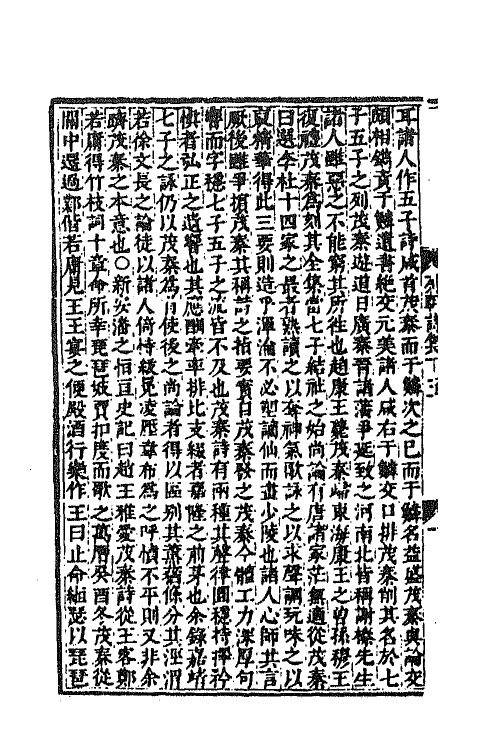 耳諸人作五子詩咸首茂秦而于鱗次之已而于鱗名益盛茂秦與論文
頗相鐫責于鱗遺書絶交元美諸人咸右于鱗交口排茂秦削其名於七
子五子之列茂秦遊道日廣秦晉諸藩爭延致之河南北皆稱謝榛先生
諸人雖惡之不能窮其所往也趙康王薨茂秦歸東海康王之曾孫穆王
復禮茂秦爲刻其全集當七子結社之始尚論有唐諸家茫無適從茂秦
曰選李杜十四家之最者熟讀之以奪神氣歌詠之以求聲調玩味之以
裒精華得此三要則造乎渾淪不必塑謫仙而畫少陵也諸人心師其言
厥後雖爭擯茂秦其稱詩之指要實自茂秦發之茂秦今體工力深厚句
響而字穩七子五子之流皆不及也茂秦詩有兩種其聲律圓穩持擇矜
慎者弘正之遺響也其應酬牽率排比支綴者嘉隆之前茅也余錄嘉靖
七子之詠仍以茂秦爲首使後之尚論者得以區別其薰蕕條分其涇渭
若徐文長之論徒以諸人倚恃紱冕凌壓韋布爲之呼憤不平則又非余
躋茂秦之本意也○新安潘之恒亘史記曰趙王雅愛茂秦詩從王客鄭
若庸得竹枝詞十章命所幸琵琶妓賈扣度而歌之萬曆癸酉冬茂秦從
關中還過鄴偕若庸見王王宴之便殿酒行樂作王曰止命絙瑟以琵琶
列朝詩集丁五